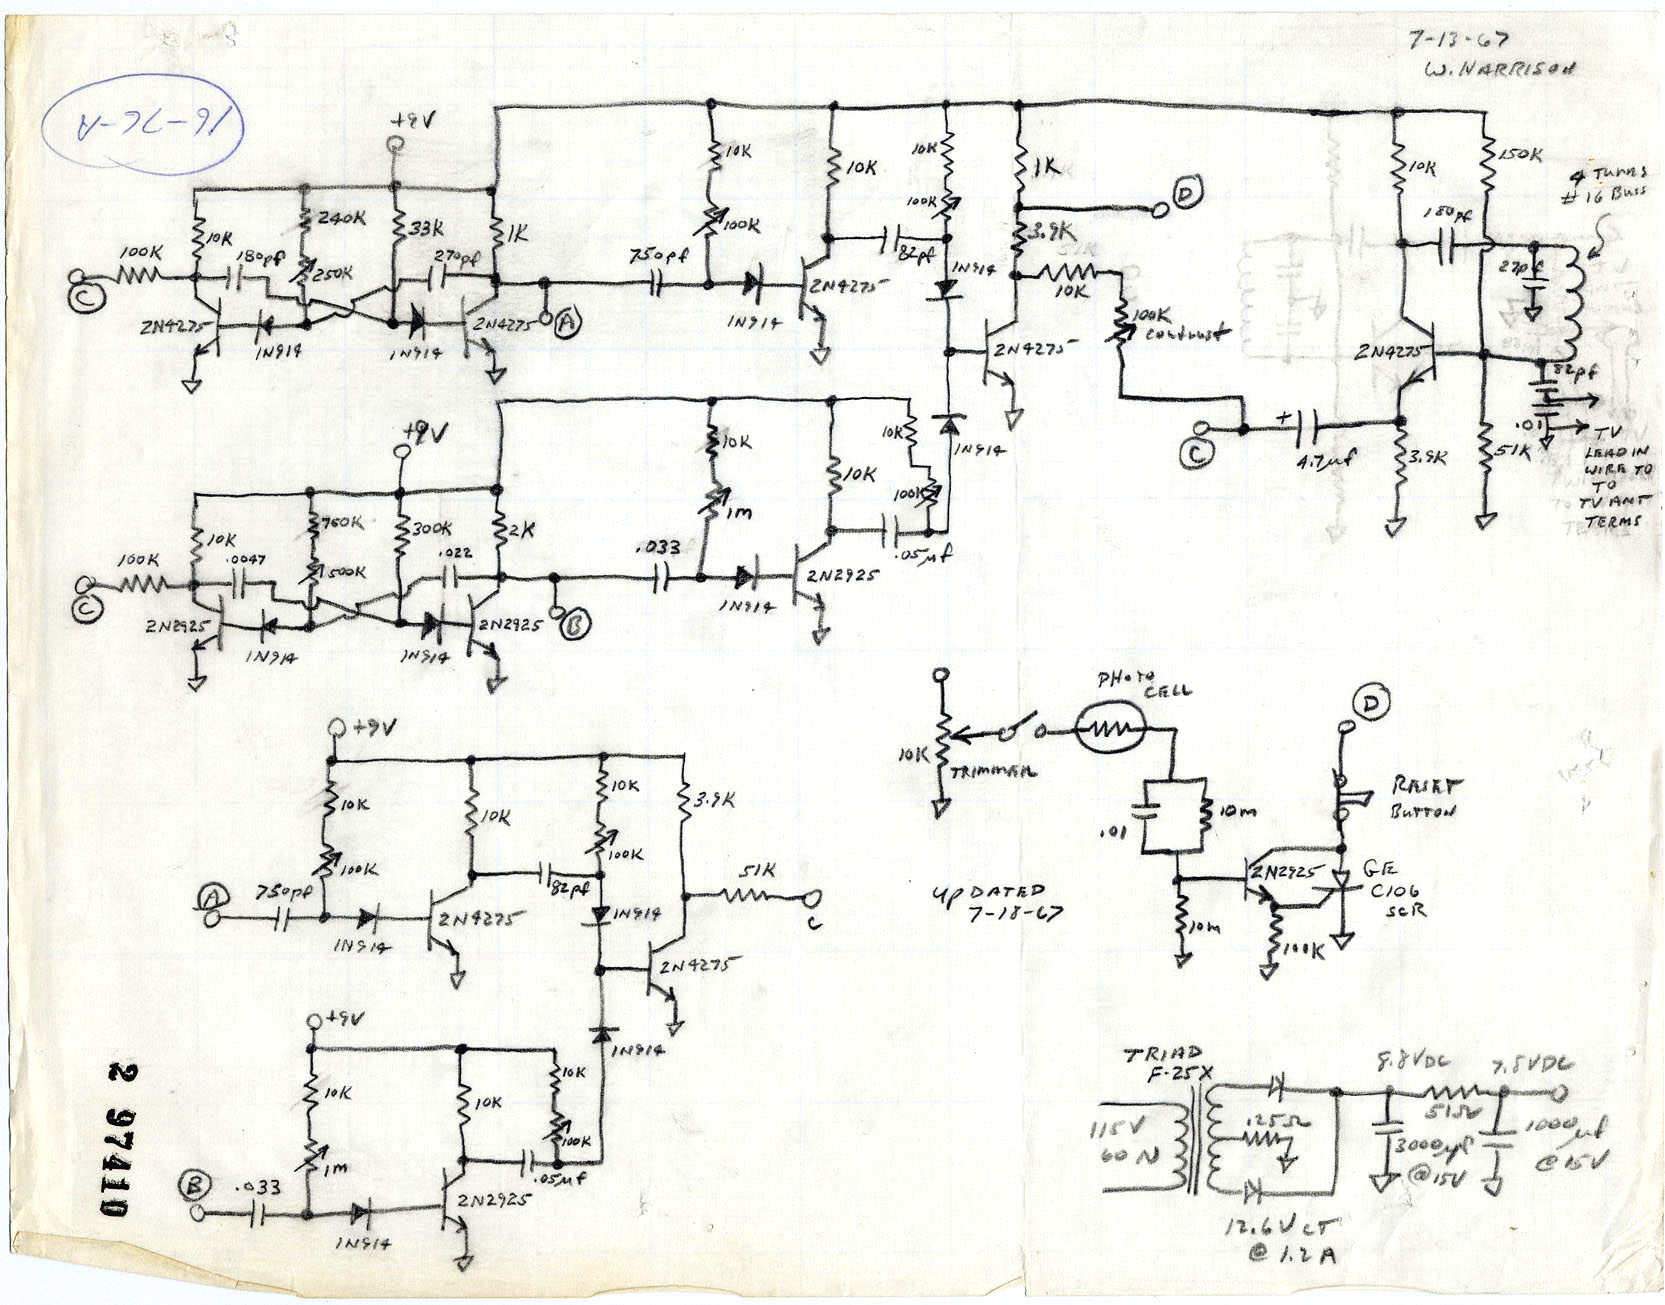 7-13-67
W. HARRISON
16-76-A
+9V
10K
10K
10K
1K
10K
150K
4 TURNS
#16 BUSS
240K
33K
1K
100K
10K
180pf
250K
270pf
750pf
100K
100K
82pf
D
3.9K
10K
180pf
27pf
C
2N4275
1N914
1N914
2N4275
A
1N914
2N4275
1N914
2N4275
100K
contrast
2N4275
82pf
.01
+9V
10K
10K
10K
1N914
C
+
4.7µf
3.9K
51K
TV
LEAD IN
WIRE TO
TO
TV ANT
TERMS
750K
300K
2K
1m
100K
100K
10K
.0047
500K
.022
.033
.05µf
C
2N2925
1N914
1N914
2N2925
B
1N914
2N2925
PHOTO
CELL
D
+9V
10K
TRIMMER
RESET
BUTTON
10K
10K
10K
3.9K
.01
10m
100K
100K
51K
A
750pf
82pf
2N2925
GE
C106
SCR
1N914
2N4275
1N914
C
UPDATED
7-18-67
10m
100K
2N4275
+9V
1N914
TRIAD
F-25X
8.8VDC
7.5VDC
10K
10K
10K
115V
60N
.25Ω
51Ω
3000µf
@15V
1000µf
@15V
1m
100K
B
.033
.05µf
2N2925
1N914
12.6V CT
@ 1.2A
2 97410